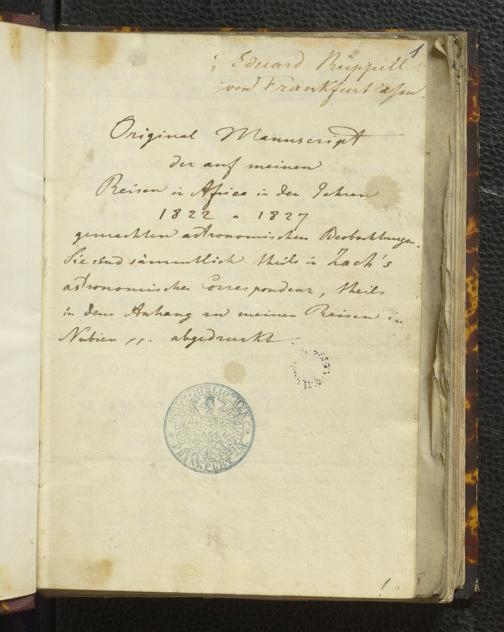 1
Eduard Rüppell
von Frankfurt a/m.
Original Manuscript
der auf meinen
Reisen in Africa in den Jahren
1822 a 1827
gemachten astronomischen Beobachtungen.
Sie sind sämmtlich theils in Zach's
astronomischer Correspondenz, theils
in dem Anhang zu meinen Reisen in
Nubien pp. abgedruckt.
STADTBIBLIOTHEK
FRANKFURT A/M